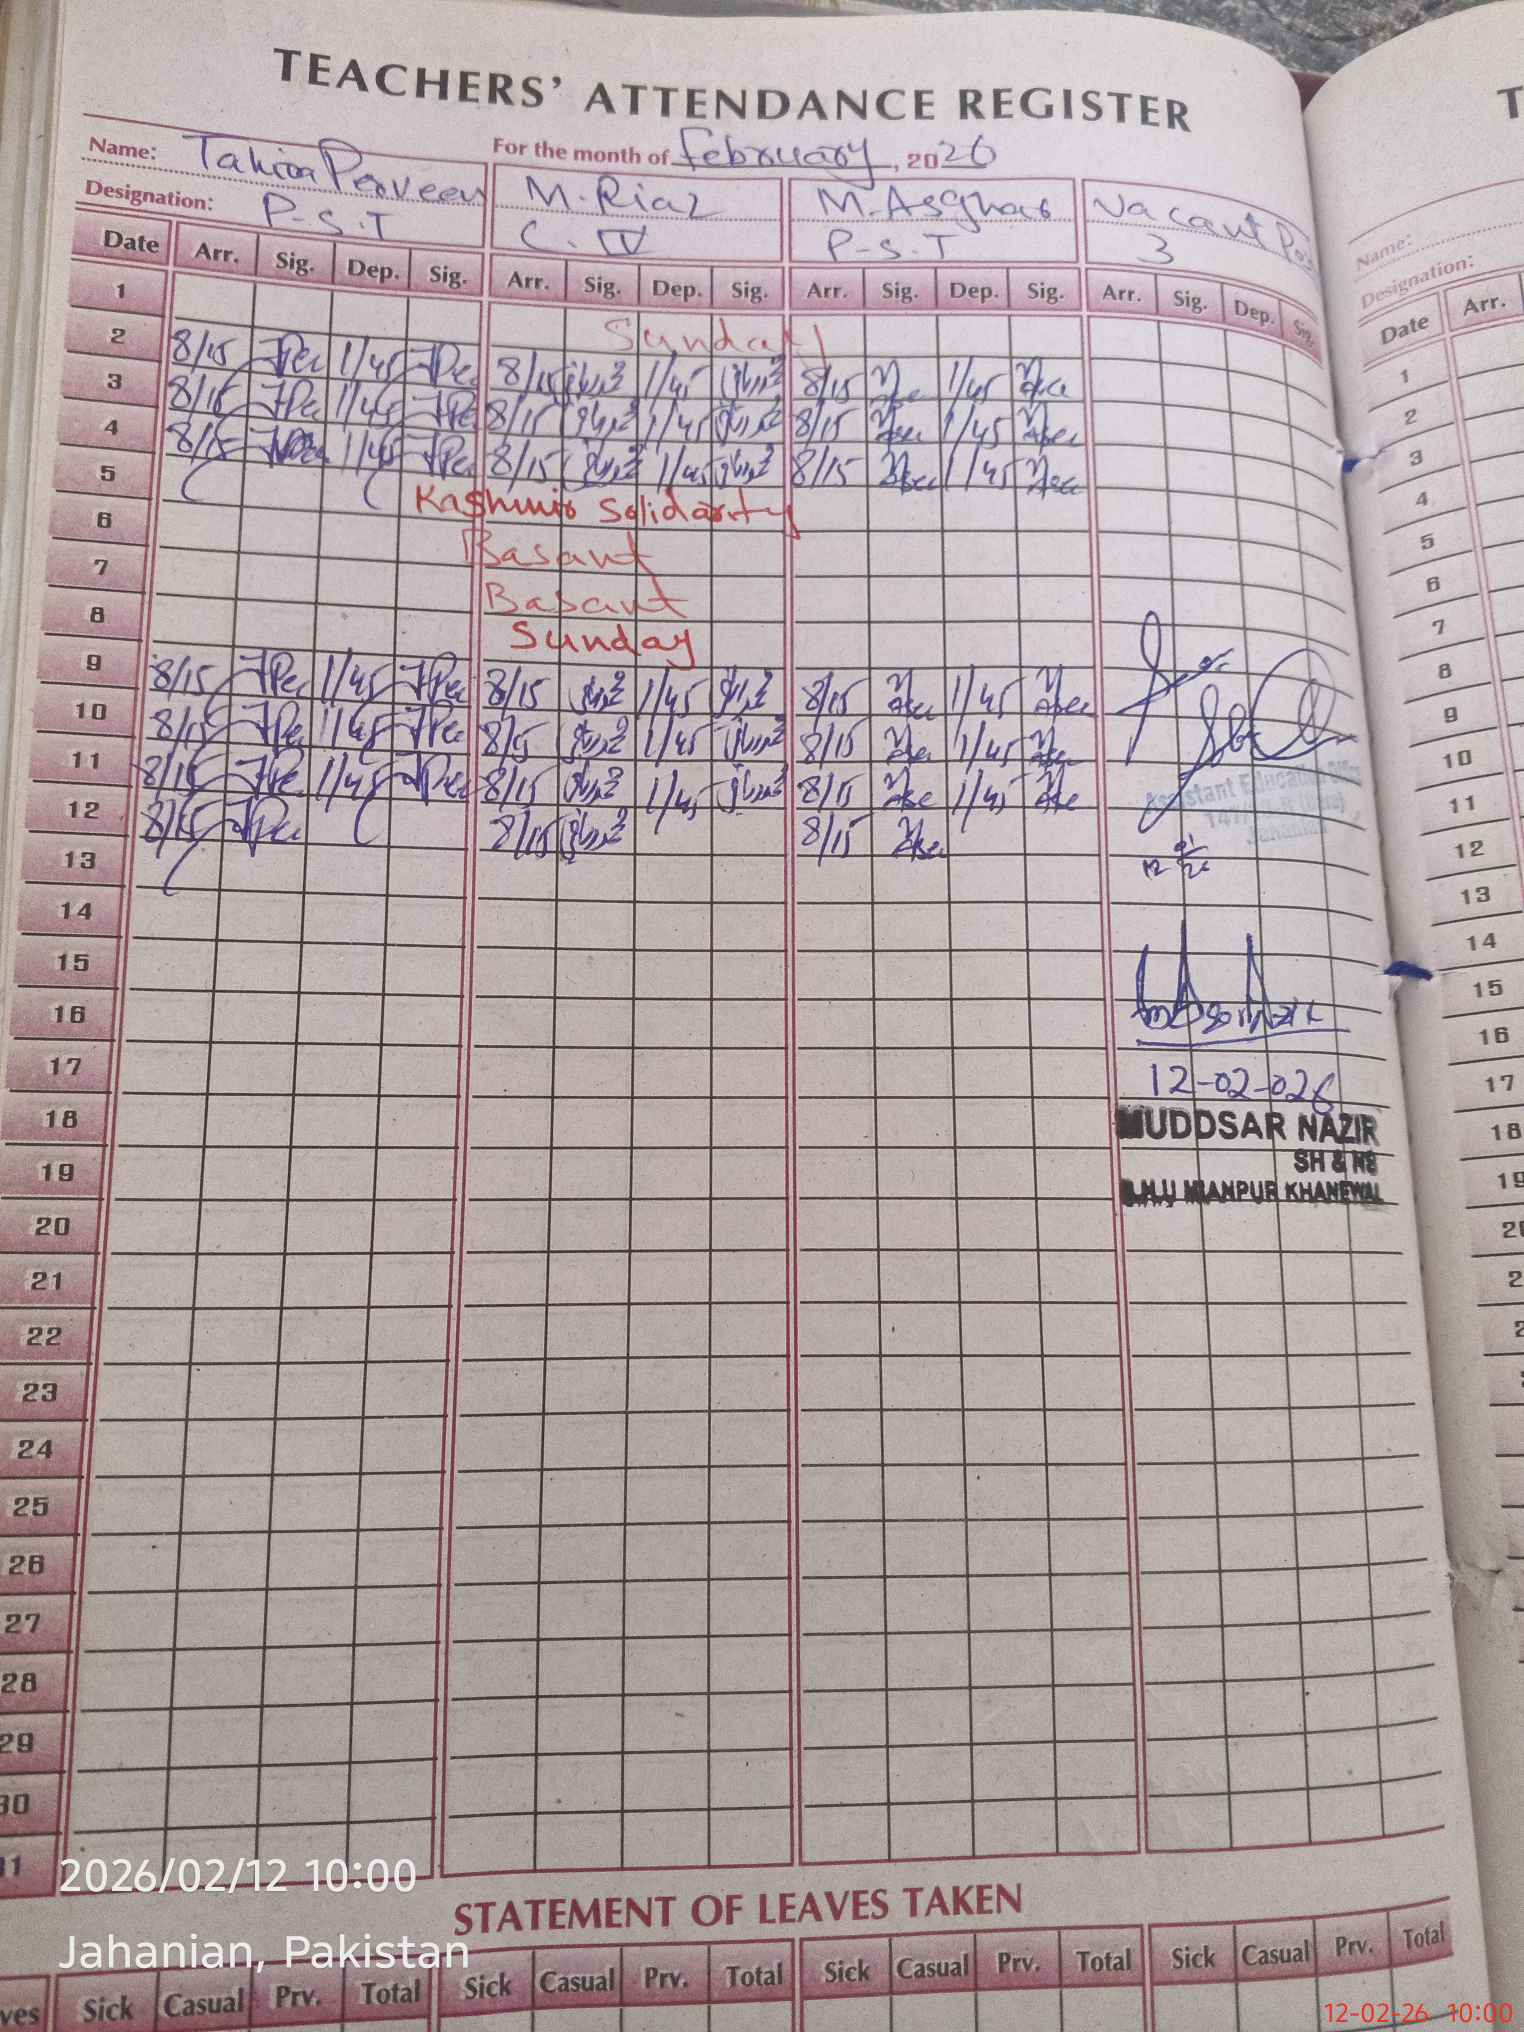 TEACHERS' ATTENDANCE REGISTER
For the month of February, 2026
Name: Tahira Perveen M.Riaz M.Asghar Vacant
Designation: P-S.T C. IV P-S.T 3
Date Arr. Sig. Dep. Sig. Arr. Sig. Dep. Sig. Arr. Sig. Dep. Sig. Arr. Sig. Dep. Sig.
1 Sunday
2 8/15 1/45 8/15 1/45 8/15 1/45
3 8/15 1/45 8/15 1/45 8/15 1/45
4 8/15 1/45 8/15 1/45 8/15 1/45
5 Kashmir Solidarity
6 Basant
7 Basant
8 Sunday
9 8/15 1/45 8/15 1/45 8/15 1/45
10 8/15 1/45 8/15 1/45 8/15 1/45
11 8/15 1/45 8/15 1/45 8/15 1/45
12 8/15 8/15 8/15
Assistant Education
Jahanian
13
14
15
16
17
12-02-026
18
MUDDSAR NAZIR
SH & NS
19
MIANPUR KHANEWAL
20
21
22
23
24
25
26
27
28
29
30
31
STATEMENT OF LEAVES TAKEN
Sick Casual Prv. Total Sick Casual Prv. Total Sick Casual Prv. Total Sick Casual Prv. Total
Name:
Designation:
Date Arr.
1
2
3
4
5
6
7
8
9
10
11
12
13
14
15
16
17
18
19
2026/02/12 10:00
Jahanian, Pakistan
12-02-26 10:00